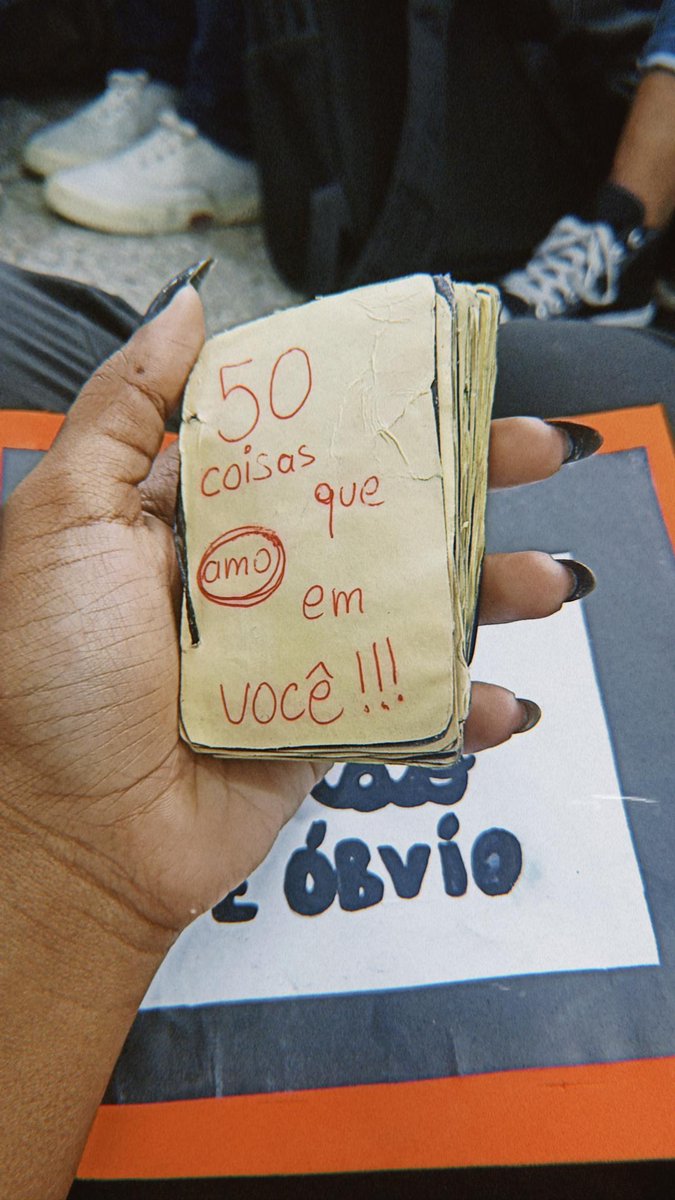 50
coisas
que
amo
em
você!!!
É ÓBVIO